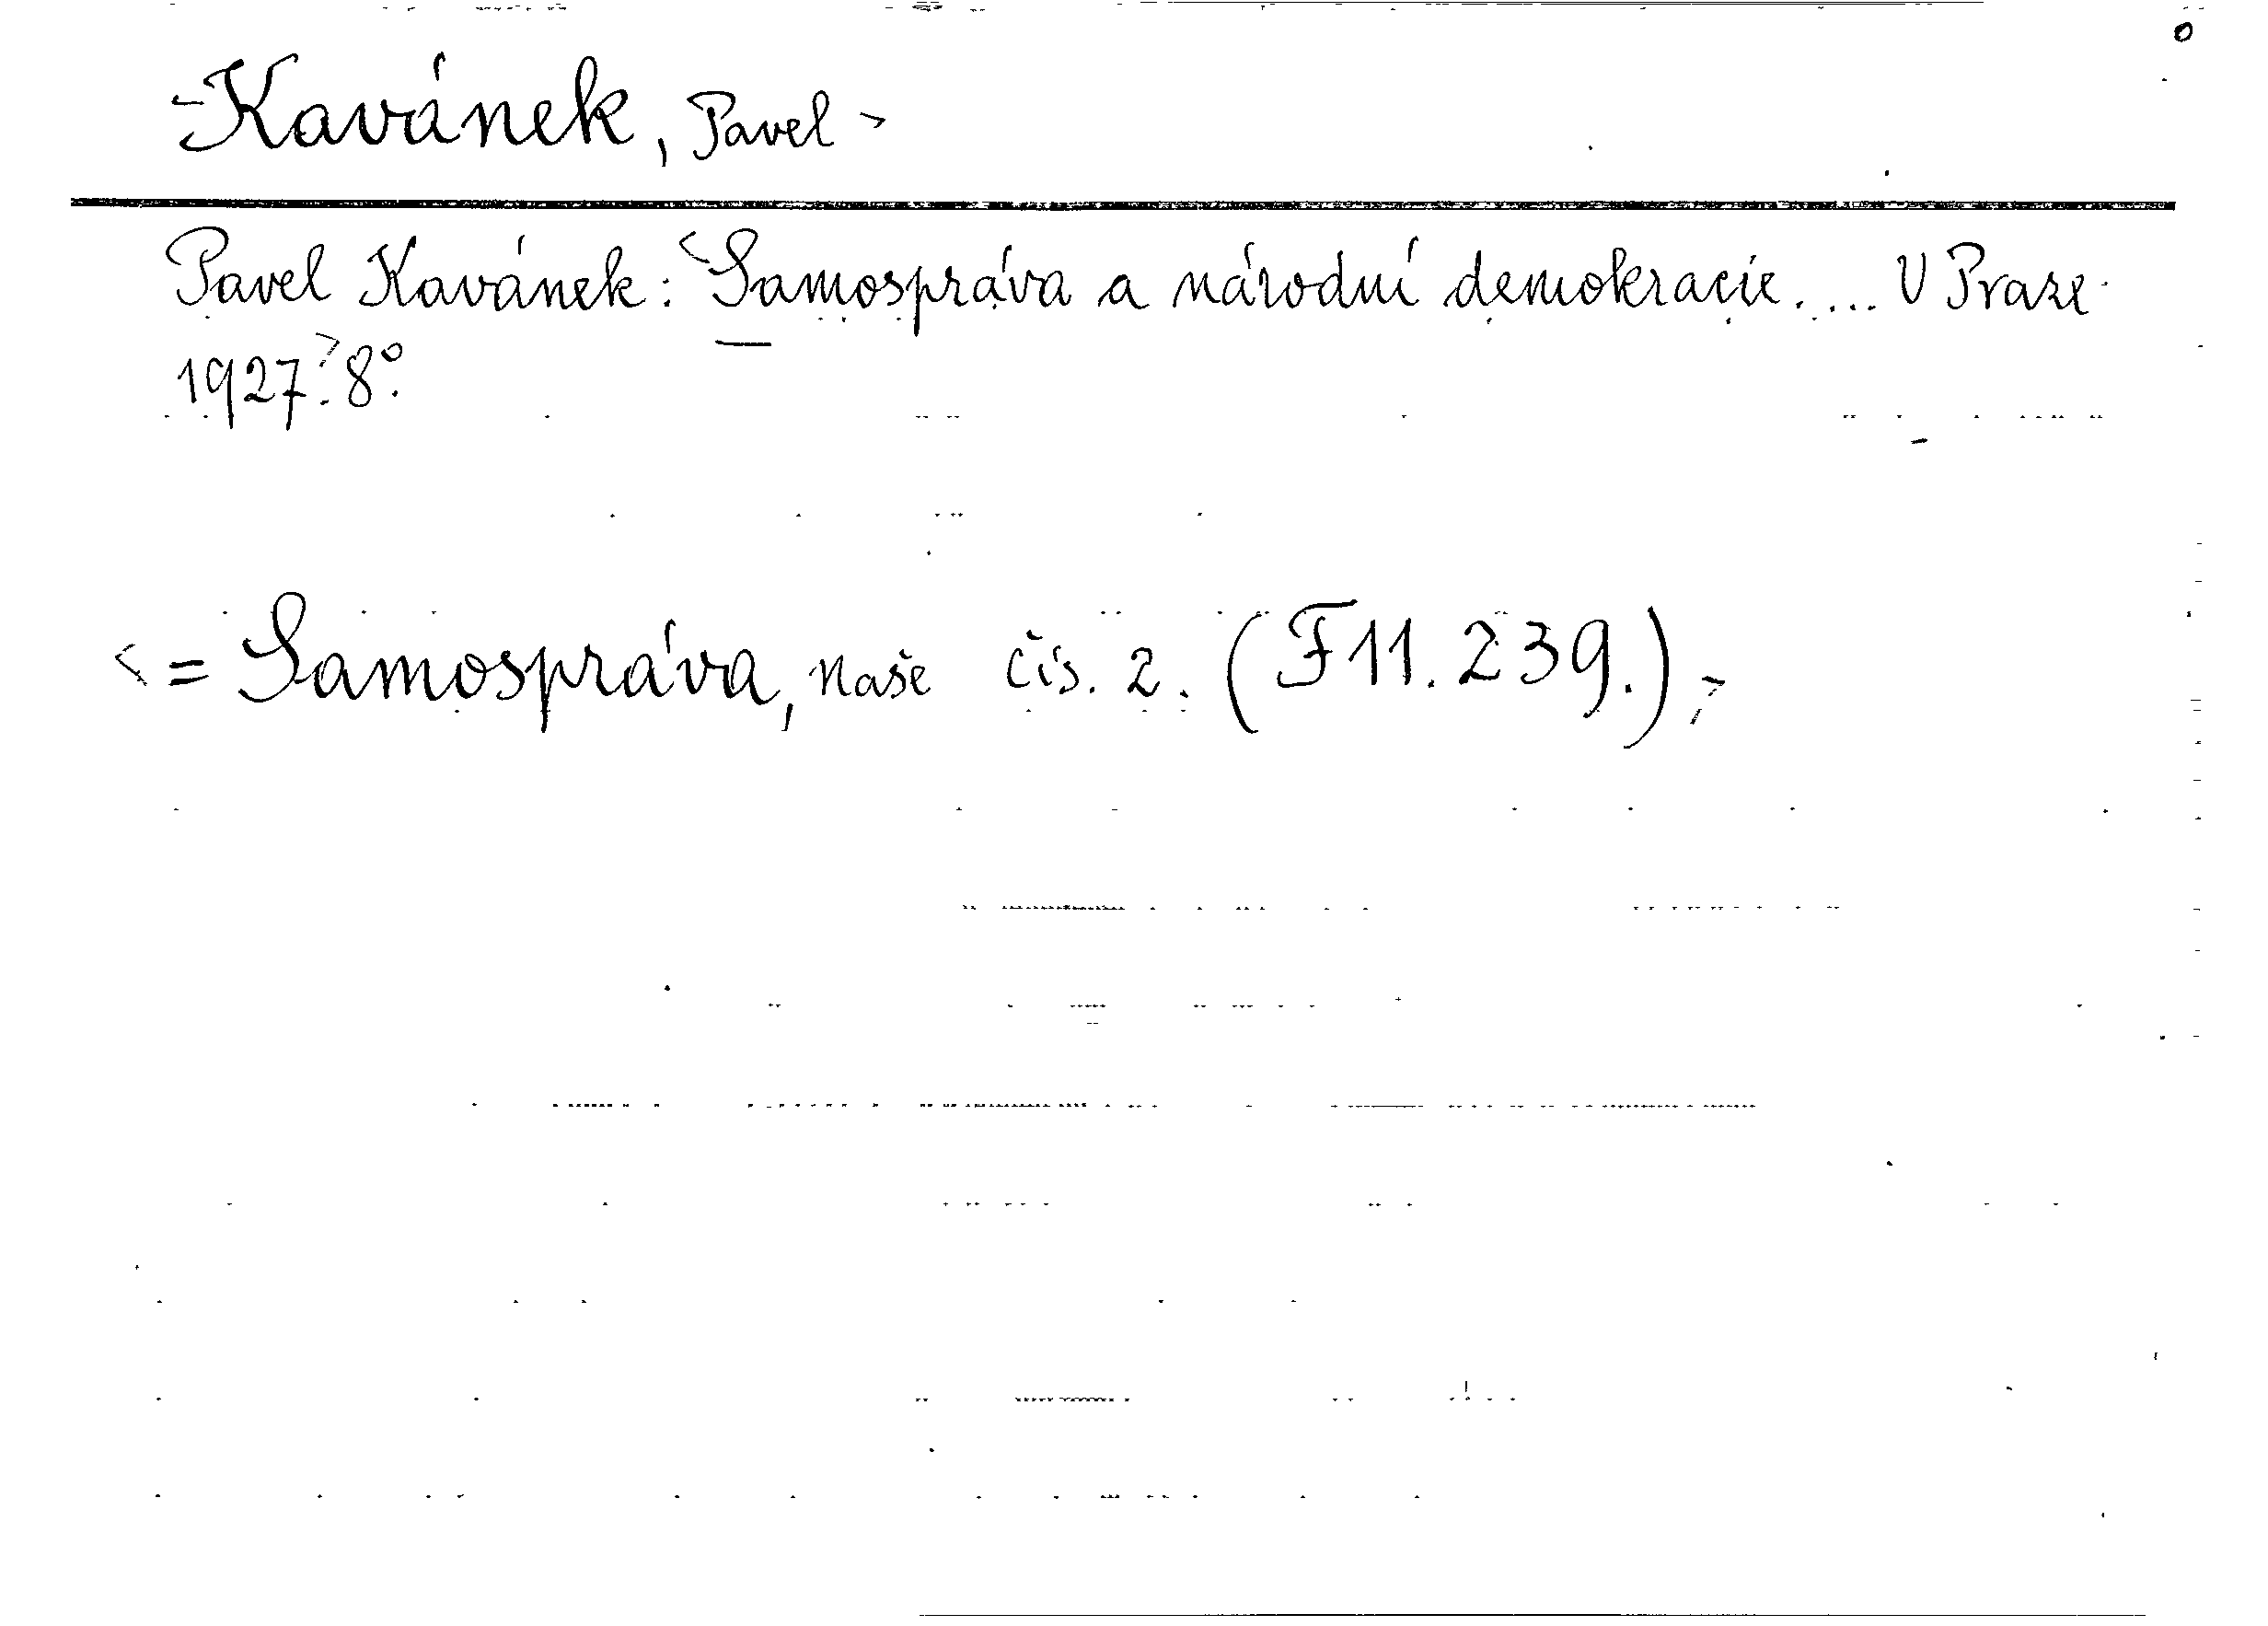 <Kavánek, Pavel>
Pavel Kavánek: <Samospráva a národní demokracie. ... V Praze
1927.> 8°.
<= Samospráva, naše čís. 2. (F11.239.)>